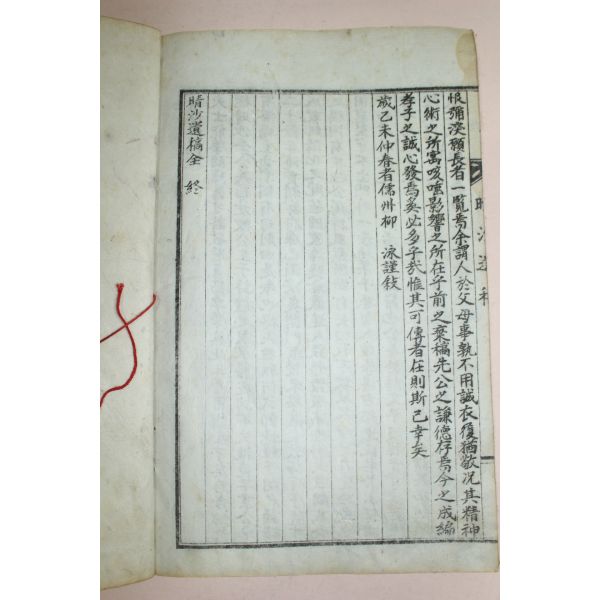 晴沙遺稿
恨彌深願長者一覽焉余謂人於父母事孰不用誠衣履猶敬況其精神
心術之所寓咳唾影響之所在乎前之棄稿先公之謙德存焉今之成編
孝子之誠心發焉奚必多乎哉惟其可傳者在則斯已幸矣
歲乙未仲春者儒州柳　泳謹敍
晴沙遺稿全　終